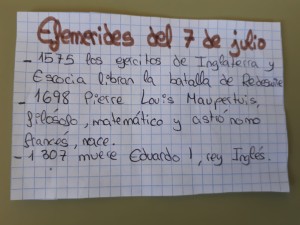 Efemerides del 7 de julio
- 1575 los ejércitos de Inglaterra y
Escocia libran la batalla de Redeswire
- 1698 Pierre Louis Maupertuis,
filósofo, matemático y astrónomo
francés, nace.
- 1307 muere Eduardo I, rey Inglés.